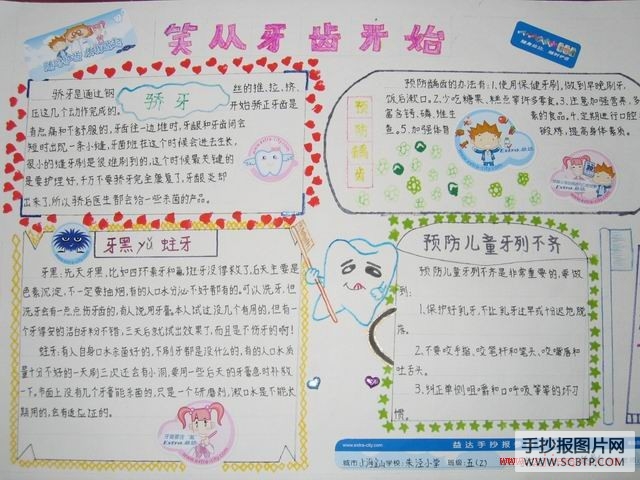 笑从牙齿开始
骄牙
骄牙是通过钢丝的推、拉、挤、
压这几个动作完成的。开始骄正牙齿是
有点痛和不舒服的,牙齿往一边推时,牙龈和牙齿间会
短时出现一条小缝,牙菌斑在这个时候会进去生长,
很小的缝牙刷是很难刷到的,这个时候最关键的
是要护理好,千万不要骄牙完全康复了,牙龈炎却
出来了,所以骄后医生都会给一些杀菌的产品。
预防龋齿
预防龋齿的办法有:1.使用保健牙刷,做到早晚刷牙,
饭后漱口。2.少吃糖果、糕点等
富含钙、磷、维生
素的食品。
5.加强体育
锻炼,提高身体素
Extra 益达
牙黑yǔ 蛀牙
牙黑:先天牙黑,比如四环素牙和氟斑牙没得救了,后天主要是
色素沉淀,不一定要抽烟,有的人口水分泌不好都有的。可以洗牙,但
洗牙会有一点点伤牙齿的,有人说用牙膏。本人试过没几个有用的,但有一
个牙博安的洁白牙粉不错,三天后就试出效果了,而且是不伤牙的啊!
蛀牙:有人自身口水杀菌好的,不刷牙都是没什么的,有的人口水质
量十分不好的一天刷三次还会有小洞,要用一些后天的牙膏急时补救
一下。市面上没有几个牙膏能杀菌的,只是一个研磨剂,漱口水是不能长
期用的,会有适应证的。
Extra 益达
预防儿童牙列不齐
预防儿童牙列不齐是非常重要的,要做
到:
1.保护好乳牙,不让乳牙过早或恰迟地脱
落。
2.不要咬手指、咬笔杆和笔头、咬嘴唇和
吐舌头。
3.纠正单侧咀嚼和口呼吸等等的坏习
惯。
www.extra-city.com
益达手抄报
城市:上海金山学校:朱泾小学 班级:五(2)
手抄报图片网
WWW.SCBTP.COM